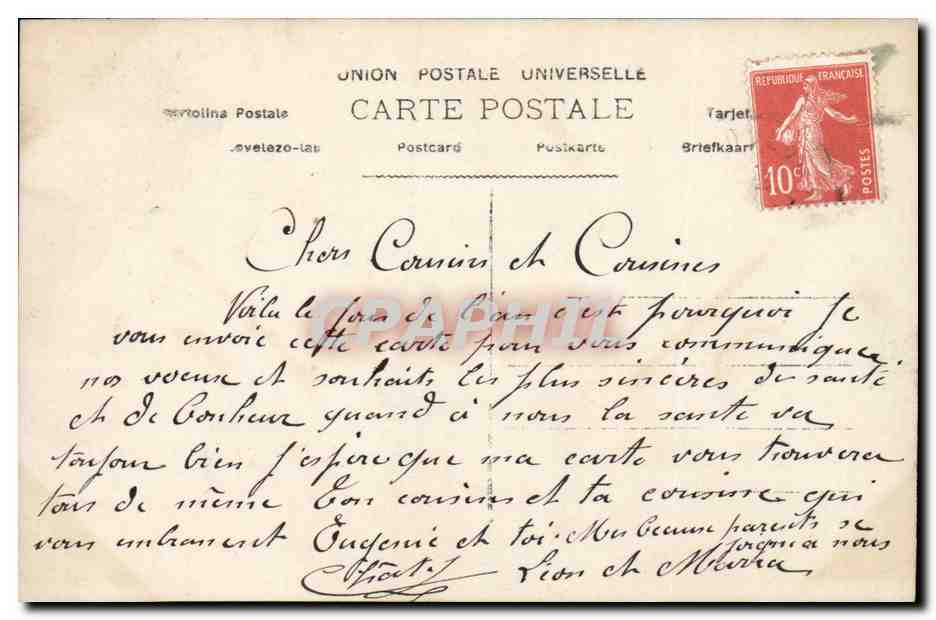 UNION POSTALE UNIVERSELLE
CARTE POSTALE
Cartolina Postale
Tarjet
Levelezo-lap Postcard Postkarte Briefkaart
REPUBLIQUE FRANÇAISE
10c
POSTES
Chers Cousins et Cousines
Voila le jour de l'an c'est pourquoi je
vous envoie cette carte pour vous communiquer
nos voeux et souhaits les plus sincères de santé
et de bonheur quand à nous la sante va
toujour bien j'espère que ma carte vous trouvera
tous de même Ton cousin et ta cousine qui
vous embrassent Eugenie et toi. Mes beaux parents se
joigne a nous
Léon et Maria
CPAPHIL